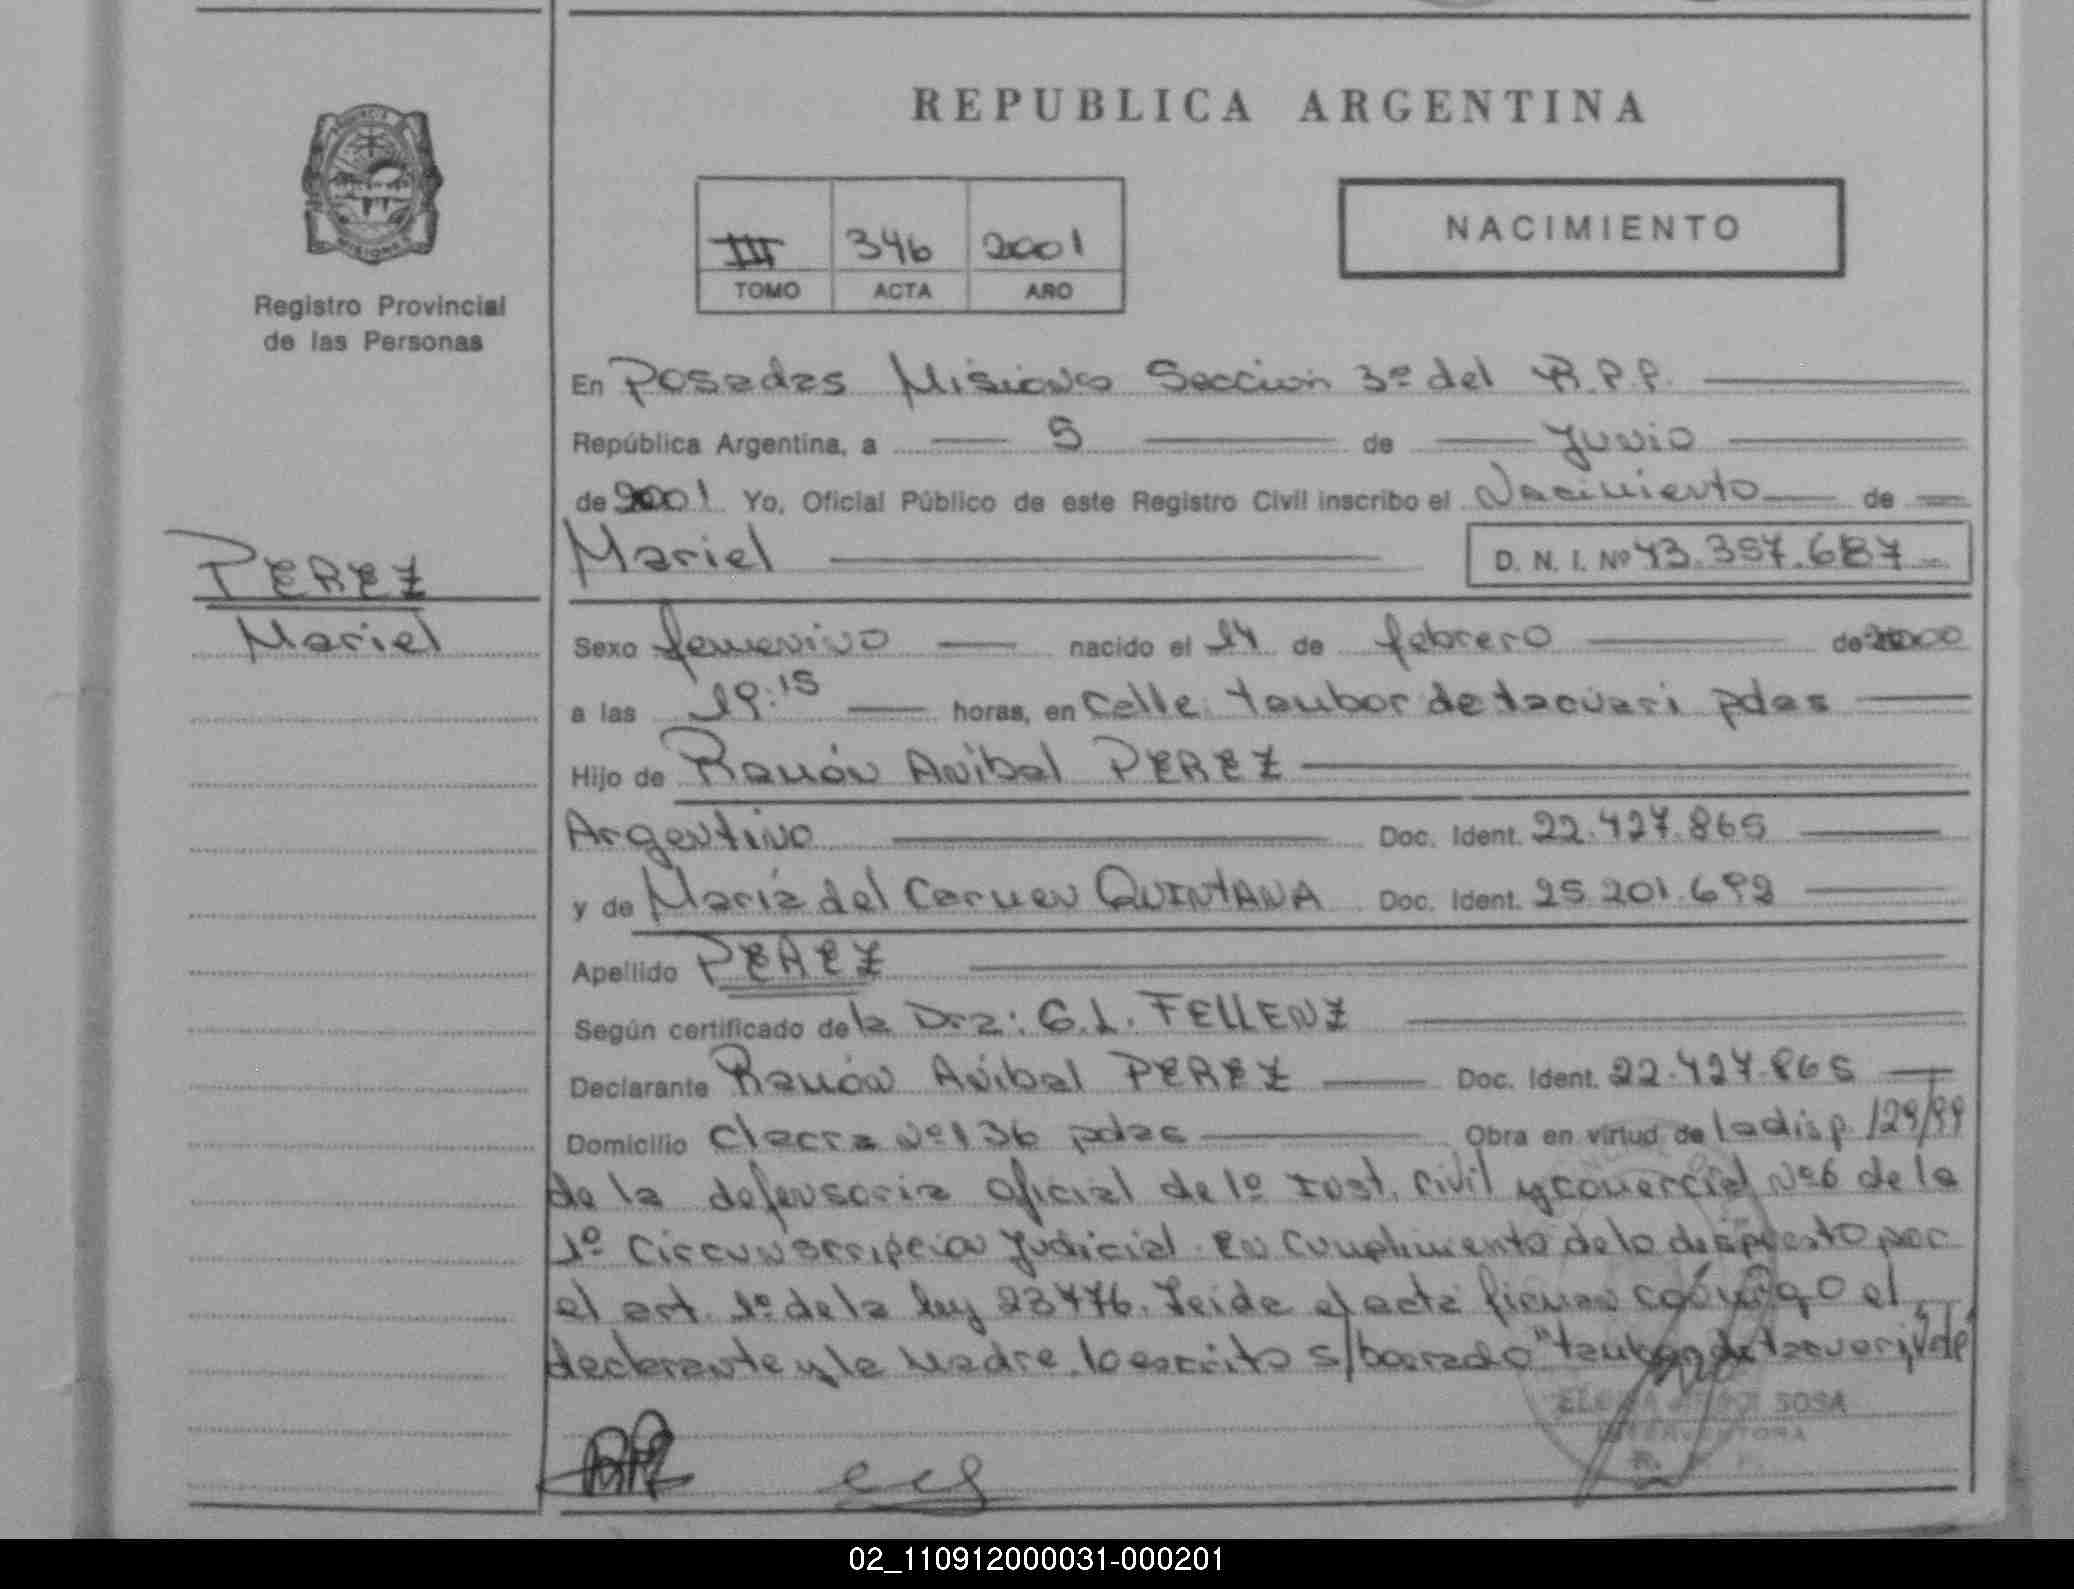 REPUBLICA ARGENTINA
NACIMIENTO
III 346 2001
TOMO ACTA AÑO
Registro Provincial
de las Personas
En Posadas Misiones Sección 3º del R.P.P.
República Argentina, a 5 de Junio
de 2001 Yo, Oficial Público de este Registro Civil inscribo el Nacimiento de
Mariel D. N. I. Nº 43.357.687
PEREZ
Mariel
Sexo femenino nacido el 14 de febrero de 2000
a las 19:15 horas, en Calle: tambor de tacuari pdas
Hijo de Ramón Anibal PEREZ
Argentino Doc. Ident. 22.427.865
y de María del Carmen QUINTANA Doc. Ident. 25.201.692
Apellido PEREZ
Según certificado de la Dra: G.L. FELLENZ
Declarante Ramón Anibal PEREZ Doc. Ident. 22.427.865
Domicilio Chacra Nº 136 pdas Obra en virtud de la disp. 129/99
de la defensoria oficial de 1º Inst. Civil y comercial Nº 6 de la
1º Circunscripcion Judicial. En cumplimiento de lo dispuesto por
el art. 1º de la ley 23476. Leida el acta firman conmigo el
declarante y la madre. lo escrito s/borrado "tambor de tacuari,
SOSA
INTERVENTORA
02_110912000031-000201